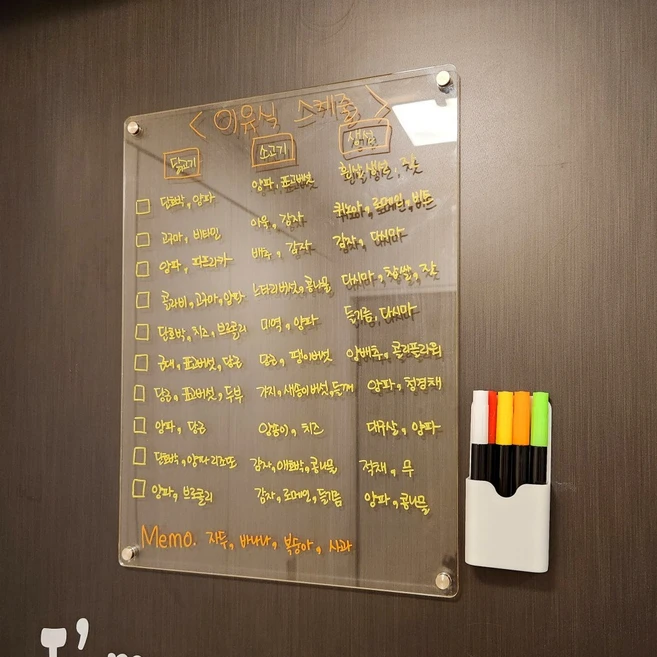 < 이유식 스케줄 >
닭고기 소고기 생선
단호박, 양파 양파, 표고버섯 흰살생선, 잣
고구마, 비타민 아욱, 감자 퀴노아, 로메인, 빈츠
양파, 파프리카 배추, 감자 감자, 다시마
콜라비, 고구마, 양파 느타리버섯, 콩나물 다시마, 찹쌀, 잣
단호박, 치즈, 브로콜리 미역, 양파 들기름, 다시마
근대, 표고버섯, 당근 당근, 팽이버섯 양배추, 콜리플라워
당근, 표고버섯, 두부 가지, 새송이버섯, 들깨 양파, 청경채
양파, 당근 양송이, 치즈 대구살, 양파
단호박, 양파리조또 감자, 애호박, 콩나물 적채, 무
양파, 브로콜리 감자, 로메인, 들기름 양파, 콩나물
Memo. 자두, 바나나, 복숭아, 사과
I'm